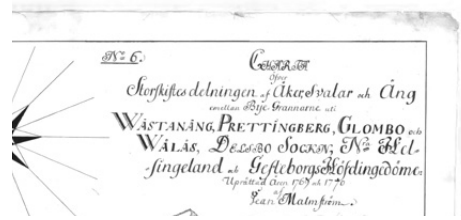 No. 6.
Charta
öfver
Storskiftes delningen af Åker, Svalar och Äng
emellan Bye Grannarne uti
WÄSTANÄNG, PRETTINGBERG, GLOMBO och
WALÅS, DELSBO SOCKN; No. Hel-
singeland och Gefleborgs Höfdingedöme.
Uprättad Åren och
af
Jean Malmström.